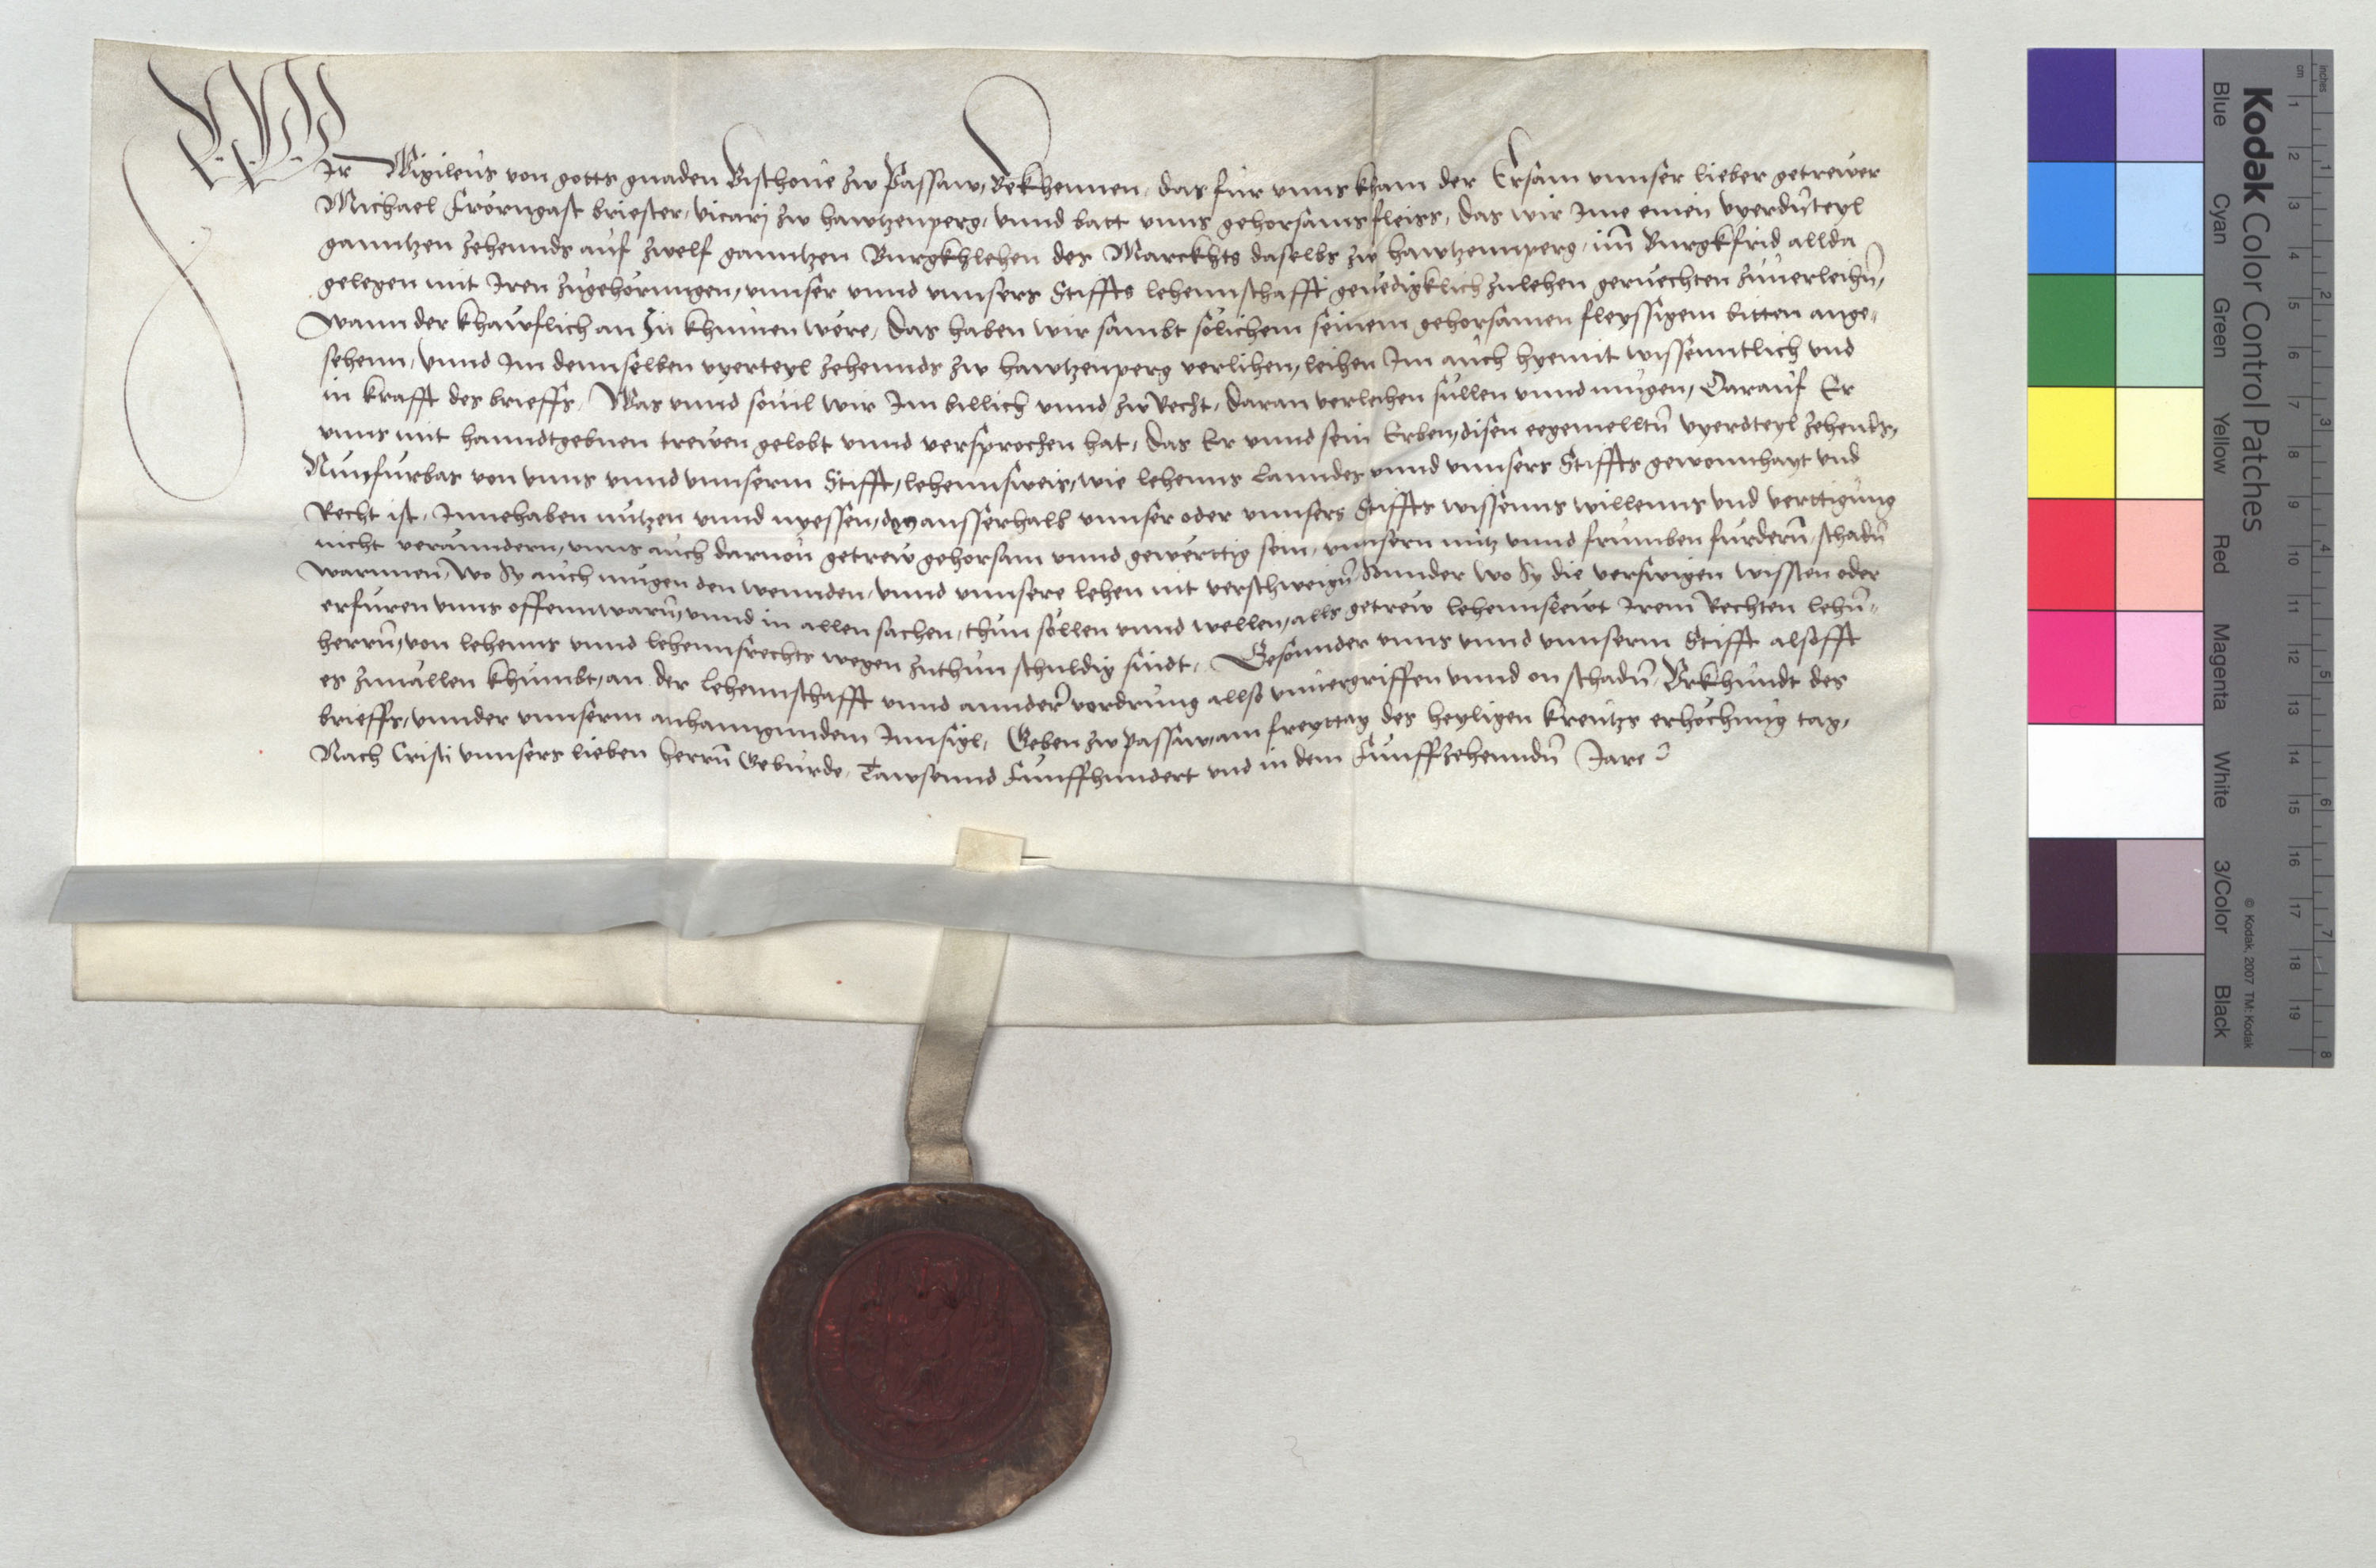 WIr Wigileus von gotts gnaden Bischoue zw Passaw, Bekhennen, das für vnns kham der Ersam vnnser lieber getrewer
Michael Frörngast briester, vicarj zw hawtzenperg, vnnd batt vnns gehorsams fleiss, das wir Ime einen vyerdñteyl
ganntzen zehennds auf zwelf ganntzen Burgkhlehen des Marckhts daselbs zw hawtzennperg, im Burgkfrid allda
gelegen mit Iren zugehörungen, vnnser vnnd vnnsers Stiffts lehennschafft genedigklich zulehen geruechten zuuerleihñ,
Wann der khawflich an Zu khumen were, Das haben wir sambt sölichem seinem gehorsamen fleyssigem bitten ange-
sehenn, Vnnd Im dennselben vyerteyl zehennds zw hawtzenperg verlihen, leihen Im auch hyemit wissenntlich vnd
in krafft des brieffs, Was vnnd souil wir Im billich vnnd zw Recht, daran verleihen süllen vnnd mügen, Darauf Er
vnns mit hanndtgebnen trewen gelobt vnnd versprochen hat, Das Er vnnd sein Erben, disen eegemelltñ vyerdteyl zehennds,
Nunfürbas von vnns vnnd vnnserm Stifft, lehennsweis, wie lehenns Lanndes vnnd vnnsers Stiffts gewonnhayt vnd
Recht ist, Innehaben nützen vnnd nyessen, den ausserhalb vnnser oder vnnsers Stiffts wissenns willenns vnd verttigung
nicht verännndern, vnns auch daruon getrew gehorsam vnnd gewerttig sein, vnnsern nutz vnnd frumben fürdern, schadñ
warnnen, wo Sy auch mügen den wennden, vnnd vnnsere lehen nit verschweigñ Sunnder wo Sy die verswigen wissten oder
erfüren vnns offennwarñ, vnnd in allen sachen, thun söllen vnnd wellen, alls getrew lehennslewt Irem Rechten lehñ-
herrñ, von lehenns vnnd lehennsrechts wegen zuthun schuldig sindt, Besonnder vnns vnnd vnnserm Stifft alsofft
es zuuällen khumbt, an der lehennschafft vnnd annder vordrung allso vnuergriffen vnnd on schadñ, Vrkhundt des
brieffs, vnnder vnnserm anhanngundem Innsigl, Geben zw passaw, am freyttag des heyligen kreutzs erhöchung tag,
Nach Cristi vnnsers lieben herrñ Geburde, Tawsennd Fünffhundert vnd in dem Fünffzehenndñ Jare
Kodak Color Control Patches
Blue Cyan Green Yellow Red Magenta White 3/Color Black
© Kodak, 2007 TM: Kodak
cm 1 2 3 4 5 6 7 8 9 10 11 12 13 14 15 16 17 18 19
inches 1 2 3 4 5 6 7 8